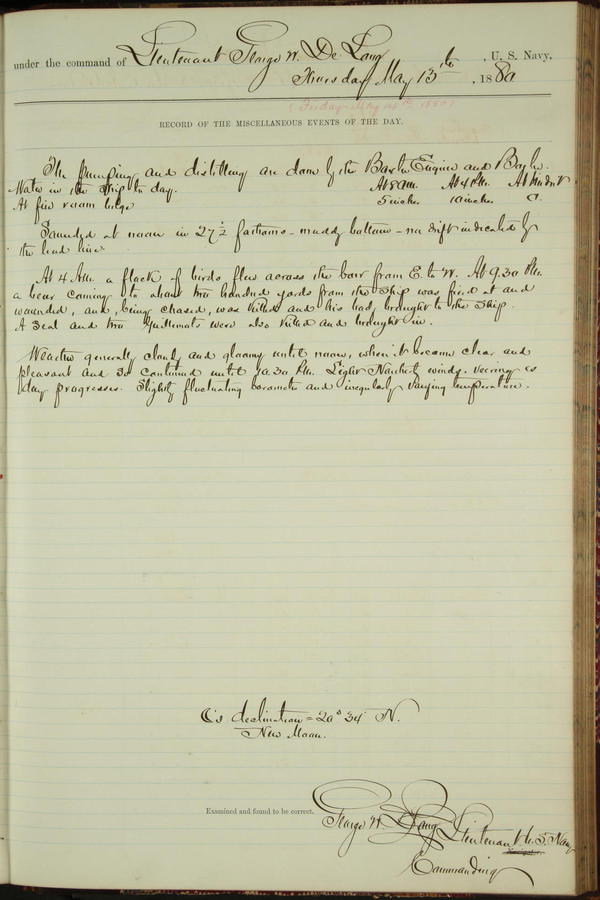 under the command of Lieutenant George W. De Long , U. S. Navy,
Thursday May 13th , 1880
(Friday May 14th 1880)
RECORD OF THE MISCELLANEOUS EVENTS OF THE DAY.
The pumping and distilling are done by the Baxter Engine and Boiler.
Water in the Ship to day. At 8 AM. At 4 P.M. At Midn't
At fire room bilge 5 inches 10 inches 0.
Sounded at noon in 27½ fathoms - muddy bottom - no drift indicated by
the lead line.
At 4 A.M. a flock of birds flew across the bow from E. to W. At 9.30 P.M.
a bear coming to about two hundred yards from the Ship was fired at and
wounded, and, being chased, was killed and his body brought to the Ship.
A Seal and two Guillemots were also killed and brought in.
Weather generally cloudy and gloomy until noon, when it became clear and
pleasant and so continued until 10.30 P.M. Light Northerly winds, veering as
day progresses. Slightly fluctuating barometer and irregularly varying temperature.
☾'s declination = 20° 34' N.
New Moon.
Examined and found to be correct.
George W. De Long Lieutenant U. S. Navy
Commanding